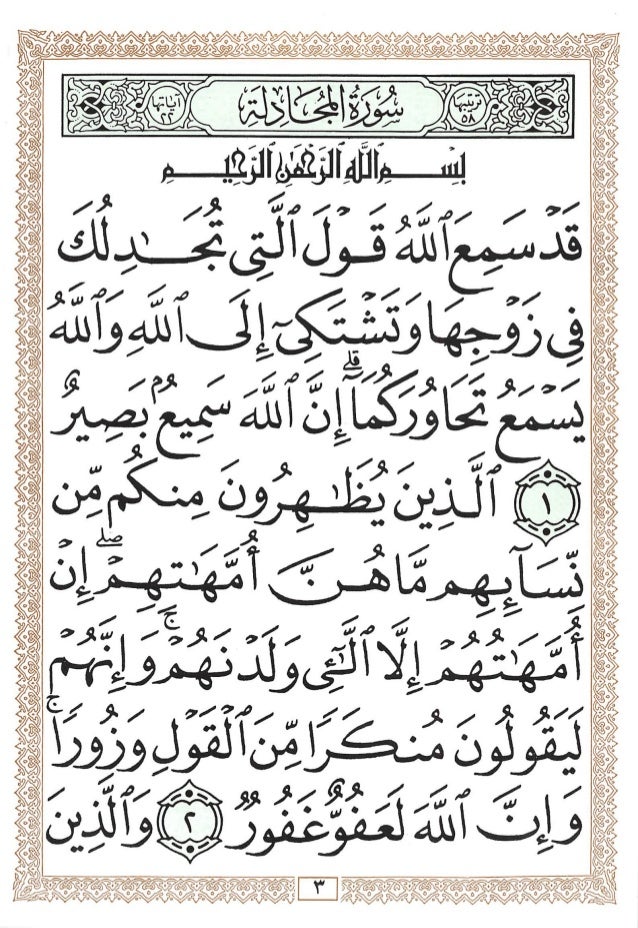 ترتيبها ٥٨ سُورَةُ المُجَادلة آياتها ٢٢
بِسْمِ ٱللَّهِ ٱلرَّحْمَٰنِ ٱلرَّحِيمِ
قَدْ سَمِعَ ٱللَّهُ قَوْلَ ٱلَّتِى تُجَٰدِلُكَ
فِى زَوْجِهَا وَتَشْتَكِىٓ إِلَى ٱللَّهِ وَٱللَّهُ
يَسْمَعُ تَحَاوُرَكُمَآ ۚ إِنَّ ٱللَّهَ سَمِيعٌۢ بَصِيرٌ
١ ٱلَّذِينَ يُظَٰهِرُونَ مِنكُم مِّن
نِّسَآئِهِم مَّا هُنَّ أُمَّهَٰتِهِمْ ۖ إِنْ
أُمَّهَٰتُهُمْ إِلَّا ٱلَّٰٓـِٔى وَلَدْنَهُمْ ۚ وَإِنَّهُمْ
لَيَقُولُونَ مُنكَرًا مِّنَ ٱلْقَوْلِ وَزُورًا ۚ
وَإِنَّ ٱللَّهَ لَعَفُوٌّ غَفُورٌ ٢ وَٱلَّذِينَ
٣